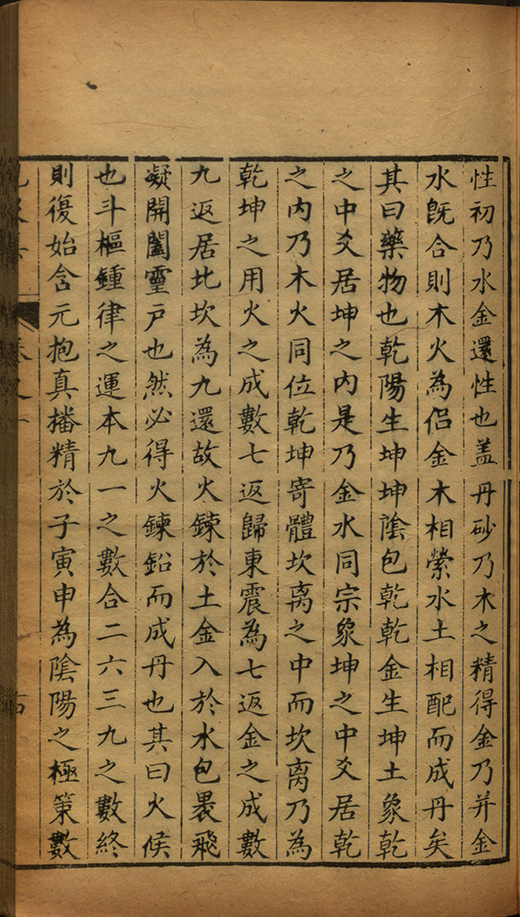 性初乃水金還性也盖丹砂乃木之精得金乃并金
水旣合則木火為侣金木相縈水土相配而成丹矣
其曰藥物也乾陽生坤坤陰包乾乾金生坤土象乾
之中爻居坤之内是乃金水同宗象坤之中爻居乾
之内乃木火同位乾坤寄體坎离之中而坎离乃為
乾坤之用火之成數七返歸東震為七返金之成數
九返居北坎為九還故火鍊於土金入於水包褁飛
凝開闔靈戸也然必得火鍊鉛而成丹也其曰火候
也斗樞鍾律之運本九一之數合二六三九之數終
則復始含元抱真播精於子寅申為陰陽之極策數